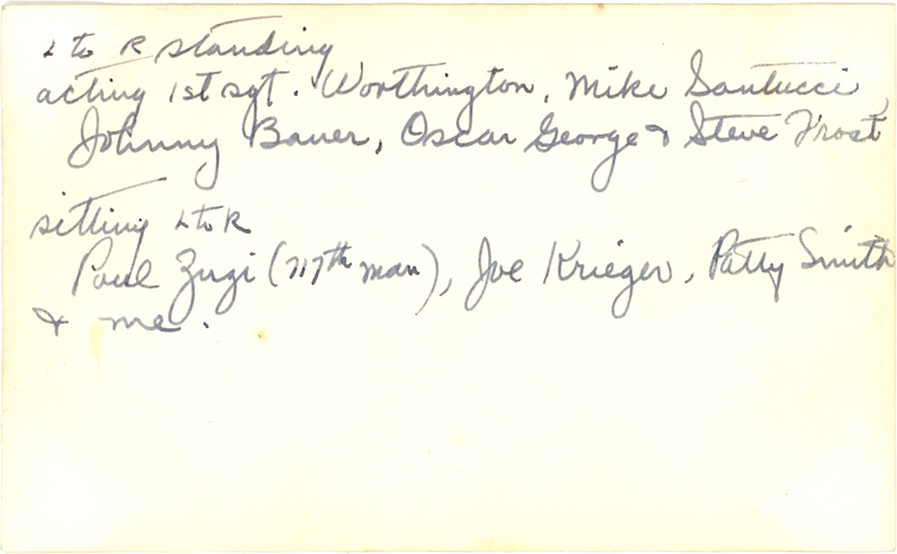 L to R standing
acting 1st sgt. Worthington, Mike Santucci,
Johnny Bauer, Oscar George & Steve Frost
sitting L to R
Paul Zugi (717th man), Joe Krieger, Patty Smith
& me.